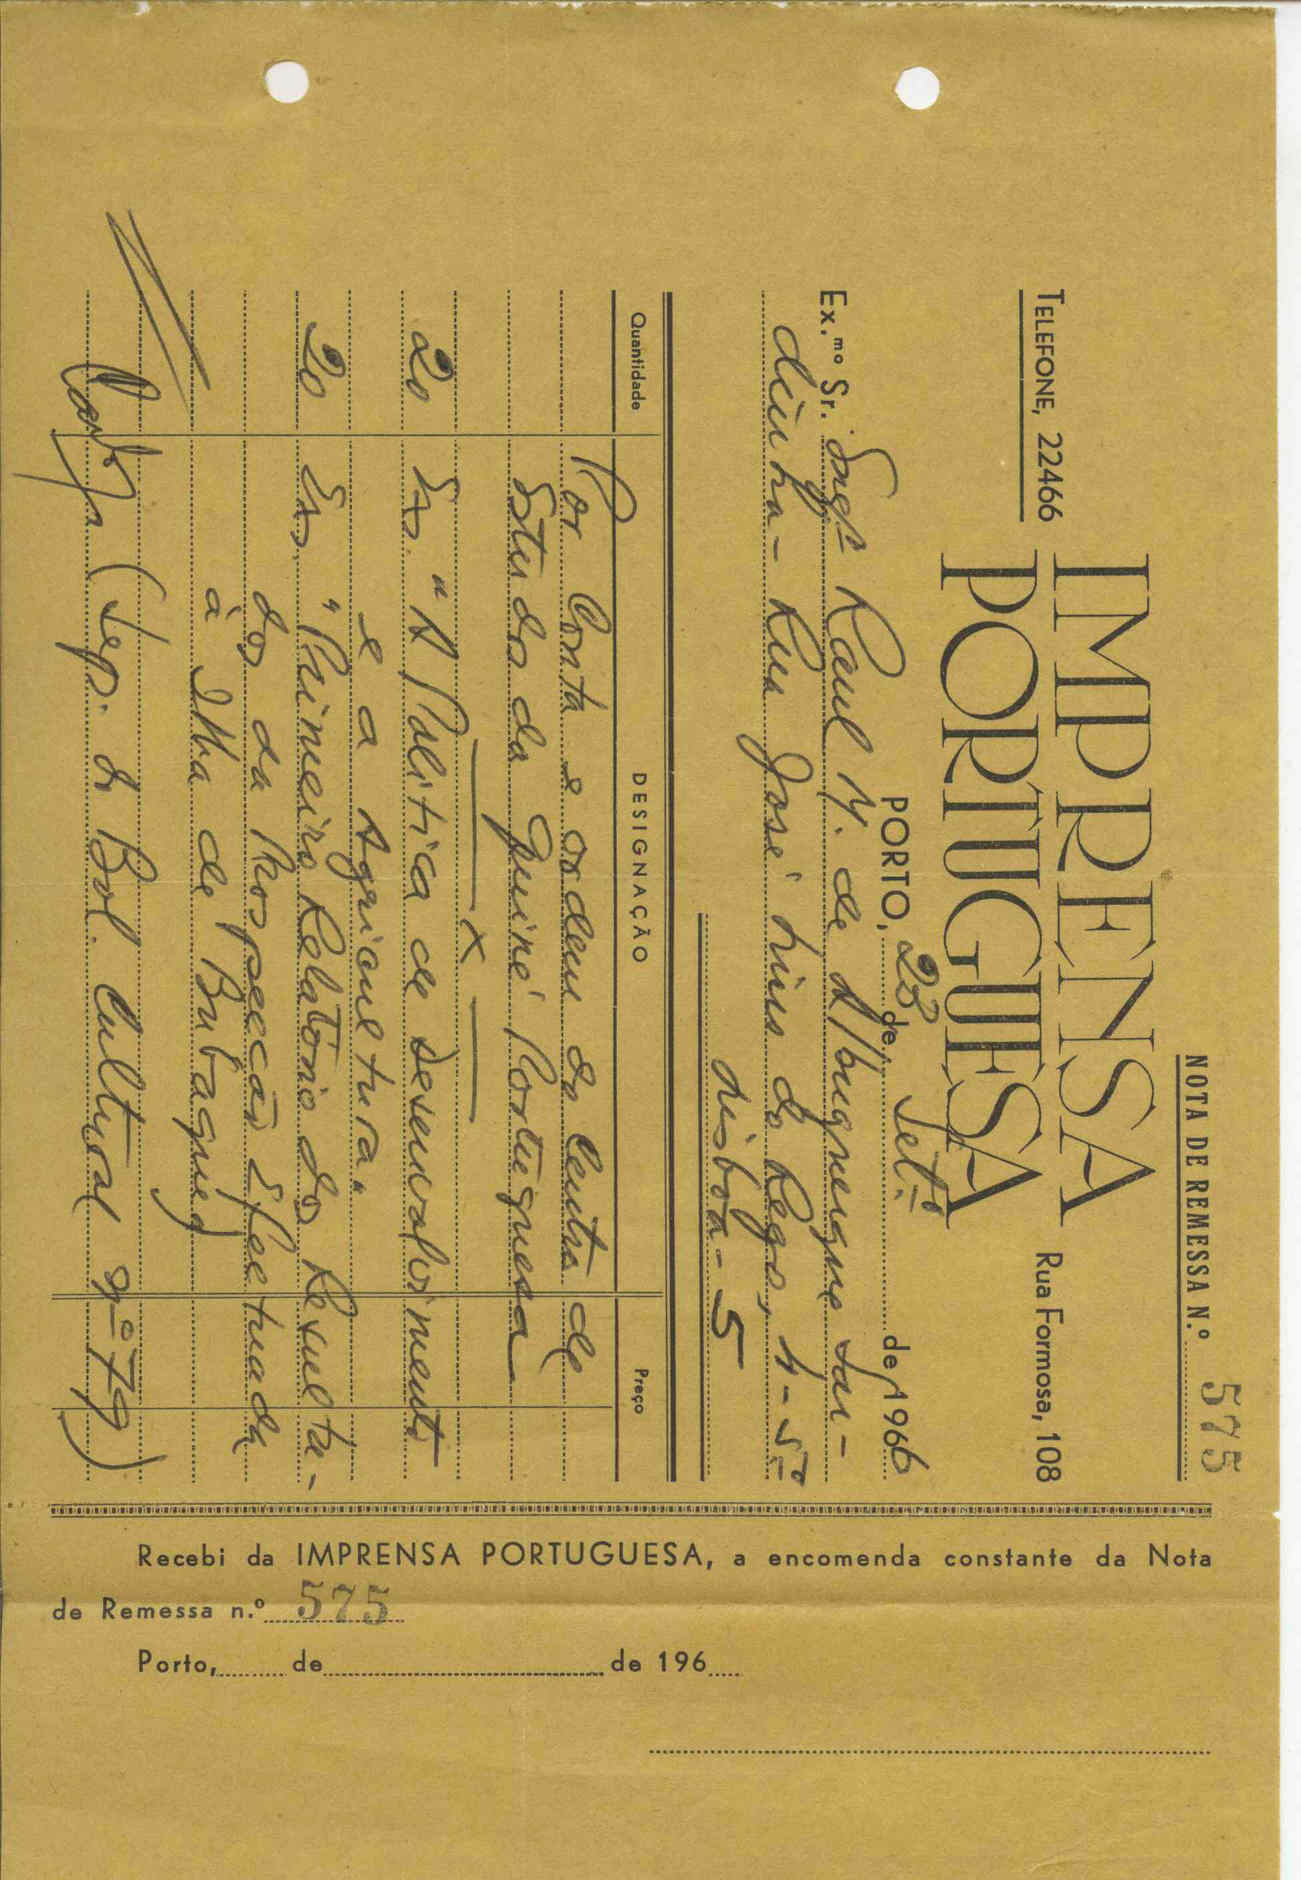 NOTA DE REMESSA N.º 575
IMPRENSA
PORTUGUESA
TELEFONE, 22466
Rua Formosa, 108
PORTO, 23 de Setº de 1966
Ex.mo Sr. Engº Raul M. de Albuquerque Sar-
dinha - Rua José Lins do Rego, 4-5º
Lisboa-5
Quantidade DESIGNAÇÃO Preço
Por Conta e ordem do Centro de
Estudos da Guiné Portuguesa
— x —
20 Exs. "A Politica de Desenvolvimento
e a Agricultura"
20 Exs. "Primeiro Relatório dos Resulta-
dos da Prospecção Efectuada
à Ilha de Bubaque)
(Sep. do Bol. Cultural nº 79)
Recebi da IMPRENSA PORTUGUESA, a encomenda constante da Nota
de Remessa n.º 575
Porto, de de 196